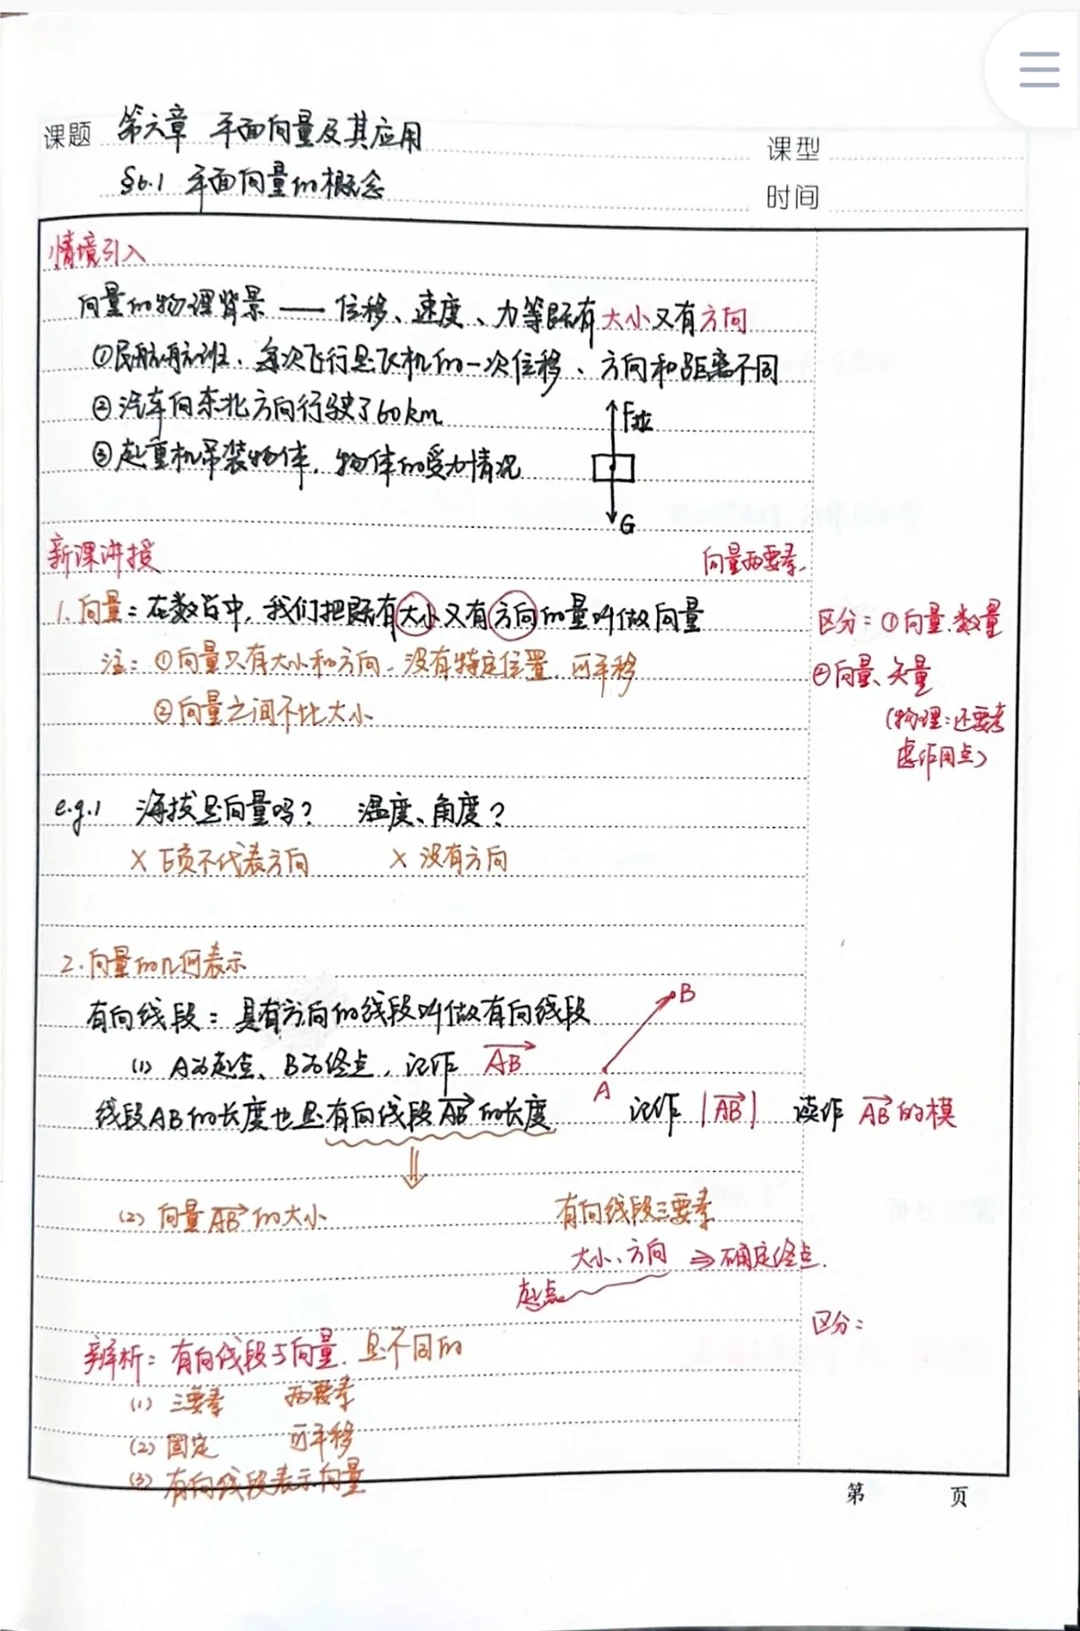 课题 第六章 平面向量及其应用
课型
§6.1 平面向量的概念
时间
情境引入
向量的物理背景 —— 位移、速度、力等既有大小又有方向
①民航航班，每次飞行是飞机的一次位移、方向和距离不同
②汽车向东北方向行驶了60km
F拉
③起重机吊装物体，物体的受力情况
G
新课讲授
向量两要素.
1.向量：在数学中，我们把既有大小又有方向的量叫做向量
区分：①向量、数量
注：①向量只有大小和方向，没有特定位置，可平移
②向量、矢量
②向量之间不比大小
(物理：还要考
虑作用点)
e.g.1 海拔是向量吗？ 温度、角度？
× 正负不代表方向 × 没有方向
2.向量的几何表示
B
有向线段：具有方向的线段叫做有向线段
(1) A为起点、B为终点，记作 AB→
A
线段AB的长度也是有向线段AB→的长度 记作 |AB→| 读作 AB→的模
⇓
(2) 向量AB→的大小 有向线段三要素
大小、方向 ⇒ 确定终点.
起点
区分：
辨析：有向线段与向量，是不同的
(1) 三要素 两要素
(2) 固定 可平移
(3) 有向线段表示向量
第 页